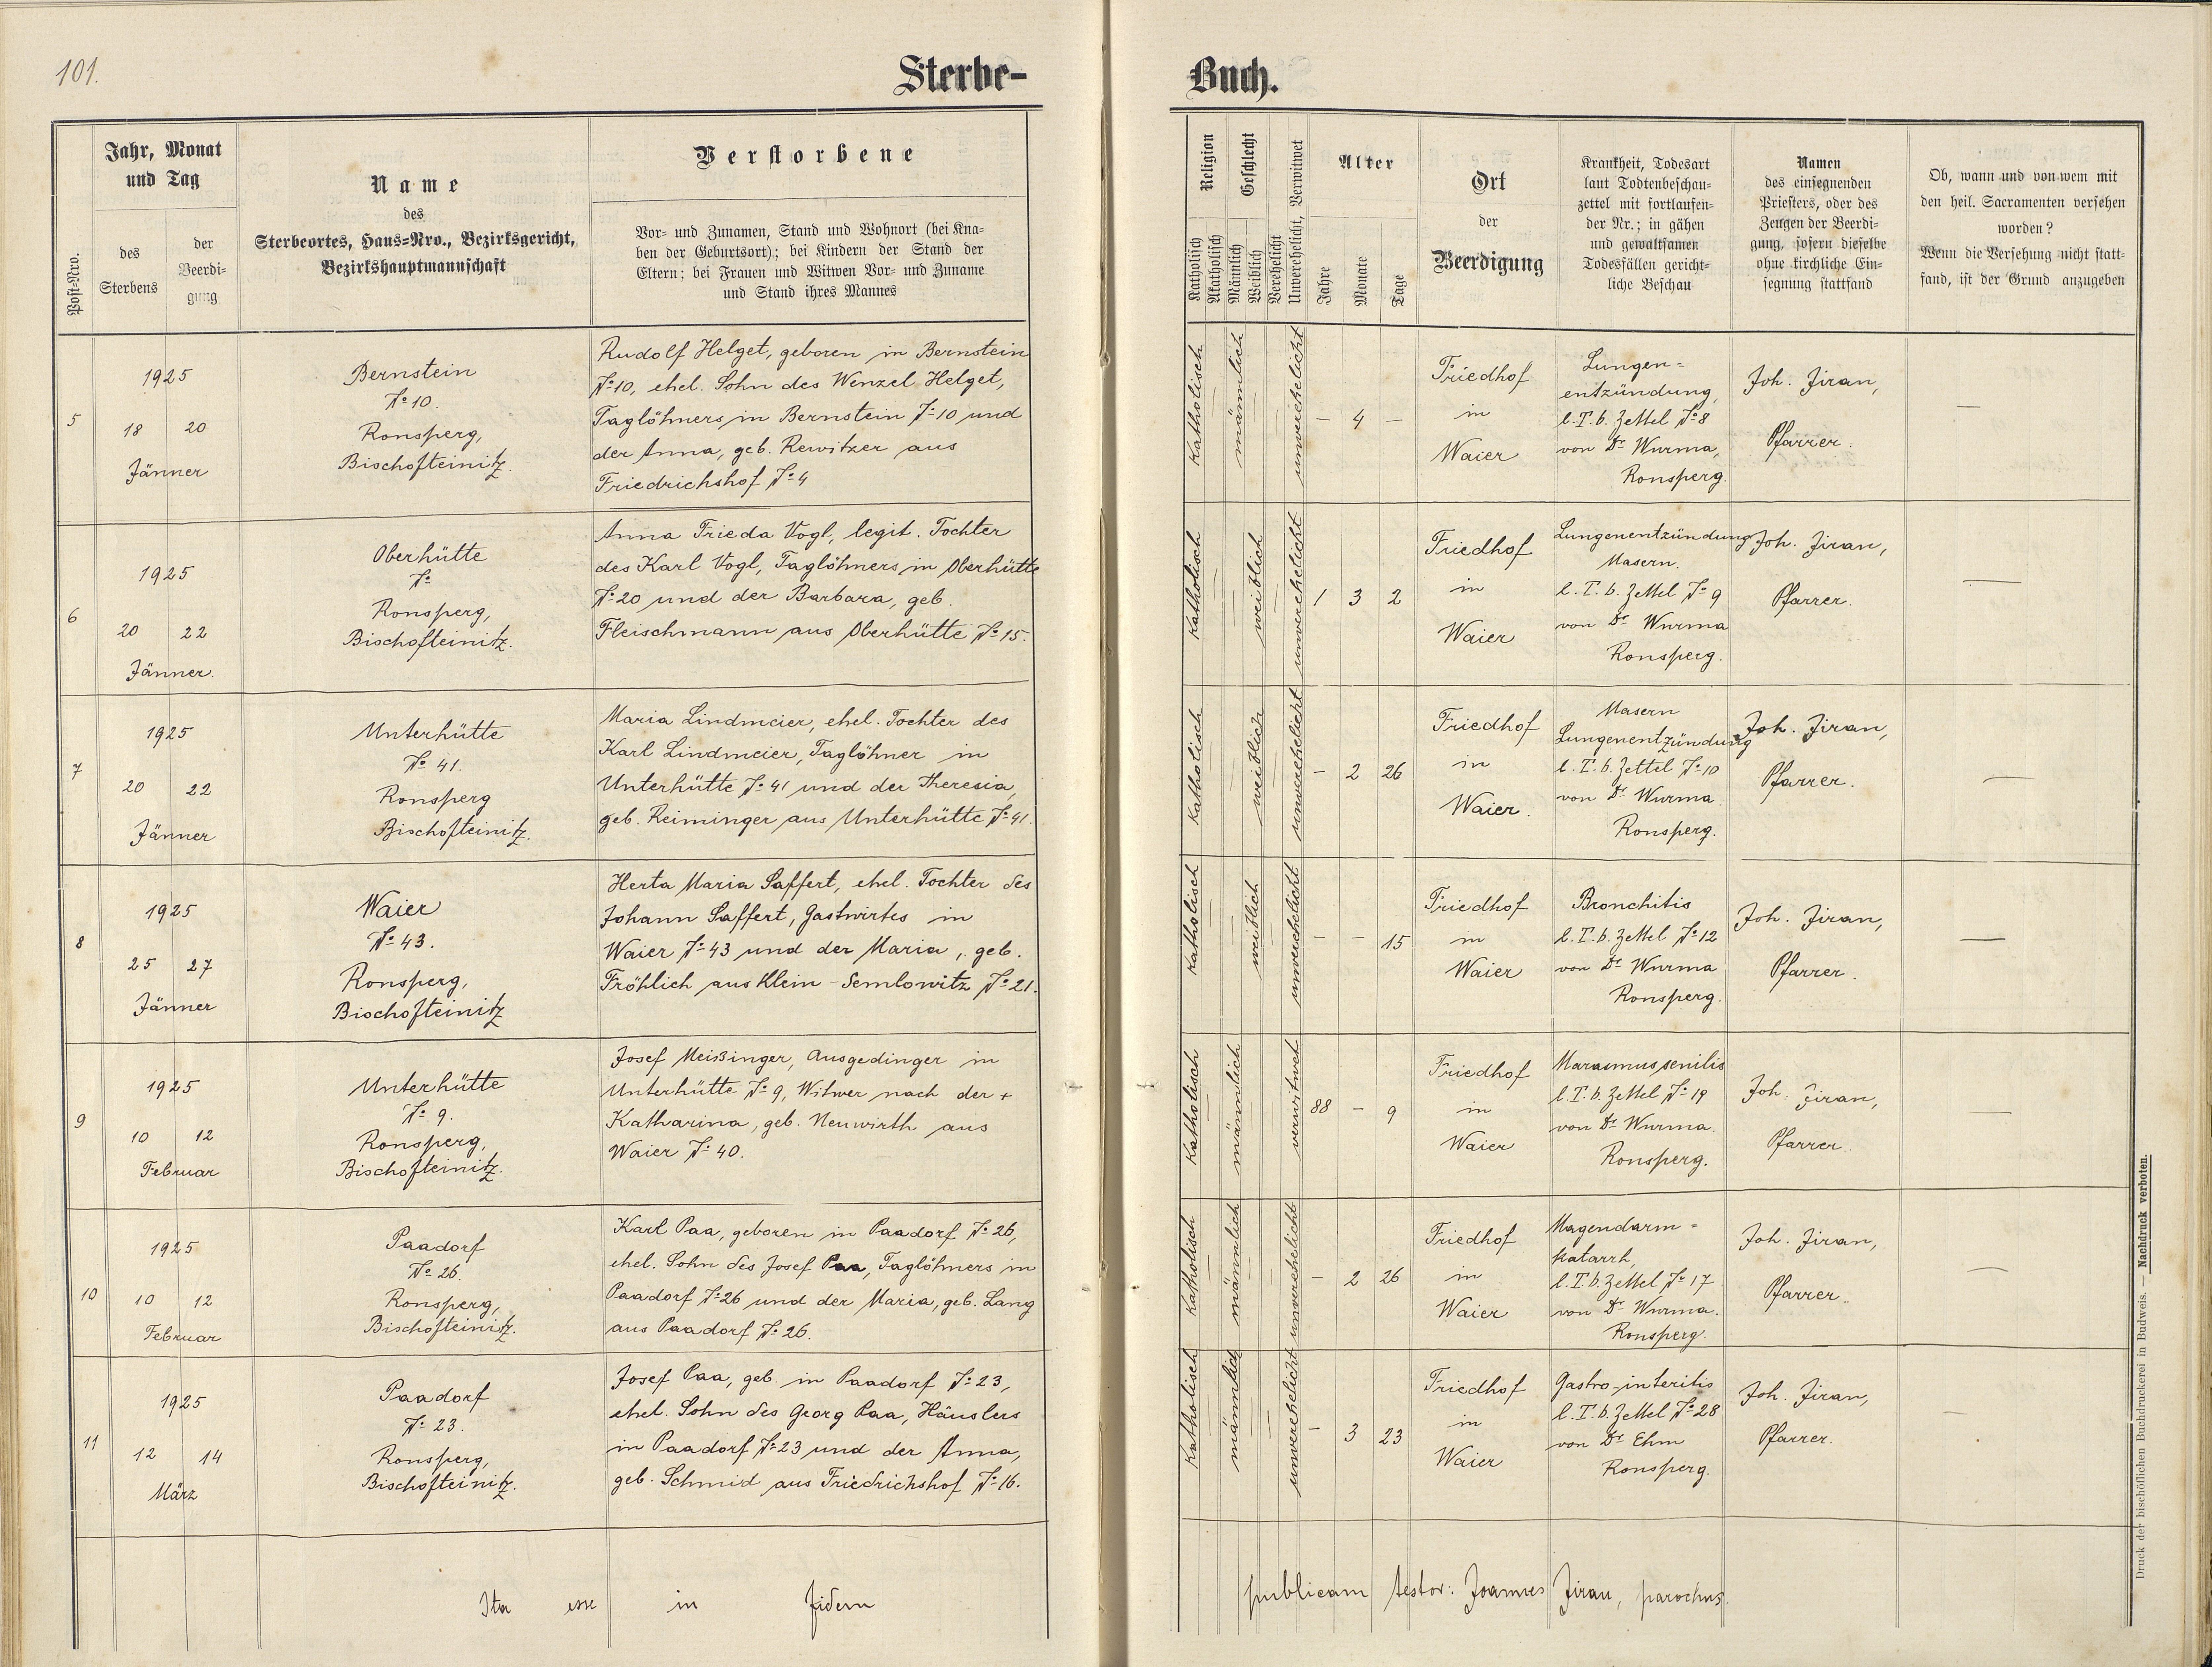 101.
Sterbe-
Buch.
Post-Nro.
Jahr, Monat
und Tag
des
Sterbens
der
Beerdi-
gung
Name
des
Sterbeortes, Haus-Nro., Bezirksgericht,
Bezirkshauptmannschaft
Verstorbene
Vor- und Zunamen, Stand und Wohnort (bei Kna-
ben der Geburtsort); bei Kindern der Stand der
Eltern; bei Frauen und Witwen Vor- und Zuname
und Stand ihres Mannes
Religion
Katholisch
Akatholisch
Geschlecht
Männlich
Weiblich
Verehelicht
Unverehelicht, Verwitwet
Alter
Jahre
Monate
Tage
Ort
der
Beerdigung
Krankheit, Todesart
laut Todtenbeschau-
zettel mit fortlaufen-
der Nr.; in gähen
und gewaltsamen
Todesfällen gericht-
liche Beschau
Namen
des einsegnenden
Priesters, oder des
Zeugen der Beerdi-
gung, sofern dieselbe
ohne kirchliche Ein-
segnung stattfand
Ob, wann und von wem mit
den heil. Sacramenten versehen
worden?
Wenn die Versehung nicht statt-
fand, ist der Grund anzugeben
5
1925
18 20
Jänner
Bernstein
No 10.
Ronsperg,
Bischofteinitz.
Rudolf Helget, geboren in Bernstein
No 10, ehel. Sohn des Wenzel Helget,
Taglöhners in Bernstein No 10 und
der Anna, geb. Rewitzer aus
Friedrichshof No 4
Katholisch
männlich
unverehelicht
— 4 —
Friedhof
in
Waier
Lungen=
entzündung,
l. T. b. Zettel No 8
von Dr Wurma,
Ronsperg.
Joh. Jiran,
Pfarrer.
—
6
1925
20 22
Jänner.
Oberhütte
No
Ronsperg,
Bischofteinitz.
Anna Frieda Vogl, legit. Tochter
des Karl Vogl, Taglöhners in Oberhütte
No 20 und der Barbara, geb.
Fleischmann aus Oberhütte No 15.
Katholisch
weiblich
unverehelicht
1 3 2
Friedhof
in
Waier
Lungenentzündung
Masern.
l. T. b. Zettel No 9
von Dr Wurma
Ronsperg.
Joh. Jiran,
Pfarrer.
—
7
1925
20 22
Jänner
Unterhütte
No 41.
Ronsperg
Bischofteinitz.
Maria Lindmeier, ehel. Tochter des
Karl Lindmeier, Taglöhner in
Unterhütte No 41 und der Theresia,
geb. Reiminger aus Unterhütte No 41.
Katholisch
weiblich
unverehelicht
— 2 26
Friedhof
in
Waier.
Masern
Lungenentzündung
l. T. b. Zettel No 10
von Dr Wurma.
Ronsperg.
Joh. Jiran,
Pfarrer.
—
8
1925
25 27
Jänner
Waier
No 43.
Ronsperg,
Bischofteinitz
Herta Maria Saffert, ehel. Tochter des
Johann Saffert, Gastwirtes in
Waier No 43 und der Maria, geb.
Fröhlich aus Klein-Semlowitz No 21.
Katholisch
weiblich
unverehelicht
— — 15
Friedhof
in
Waier
Bronchitis
l. T. b. Zettel No 12
von Dr Wurma
Ronsperg.
Joh. Jiran,
Pfarrer.
—
9
1925
10 12
Februar
Unterhütte
No 9.
Ronsperg,
Bischofteinitz.
Josef Meißinger, Ausgedinger in
Unterhütte No 9, Witwer nach der +
Katharina, geb. Neuwirth aus
Waier No 40.
Katholisch
männlich
verwitwet
88 — 9
Friedhof
in
Waier
Marasmus senilis
l. T. b. Zettel No 19
von Dr Wurma.
Ronsperg.
Joh. Jiran,
Pfarrer.
—
10
1925
10 12
Februar
Paadorf
No 26.
Ronsperg,
Bischofteinitz.
Karl Paa, geboren in Paadorf No 26,
ehel. Sohn des Josef Paa, Taglöhners in
Paadorf No 26 und der Maria, geb. Lang
aus Paadorf No 26.
Katholisch
männlich
unverehelicht
— 2 26
Friedhof
in
Waier
Magendarm=
katarrh,
l. T. b. Zettel No 17
von Dr Wurma.
Ronsperg.
Joh. Jiran,
Pfarrer.
—
11
1925
12 14
März
Paadorf
No 23.
Ronsperg,
Bischofteinitz.
Josef Paa, geb. in Paadorf No 23,
ehel. Sohn des Georg Paa, Häuslers
in Paadorf No 23 und der Anna,
geb. Schmid aus Friedrichshof No 16.
Katholisch
männlich
unverehelicht
— 3 23
Friedhof
in
Waier
Gastro-interitis
l. T. b. Zettel No 28
von Dr Ehm
Ronsperg.
Joh. Jiran,
Pfarrer.
—
Ita esse in fidem publicam testor: Joannes Jiran, parochus.
Druck der bischöflichen Buchdruckerei in Budweis. — Nachdruck verboten.